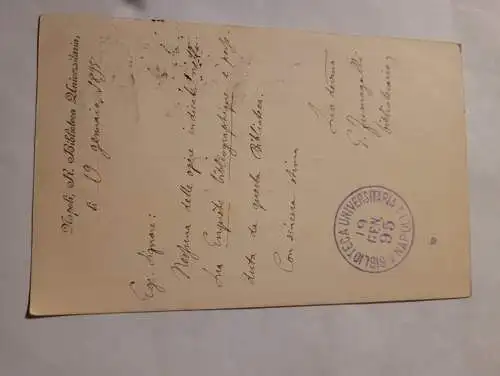 Napoli, R. Biblioteca Universitaria,
li 19 gennaio, 1895
Egr. Signore:
Nessuna delle opere indicate nella
Sua Enquête bibliographique è posse-
duta da questa Biblioteca.
Con sincera stima
Suo devmo
G. Fumagalli
bibliotecario,
BIBLIOTECA UNIVERSITARIA
19
GEN
95
NAPOLI